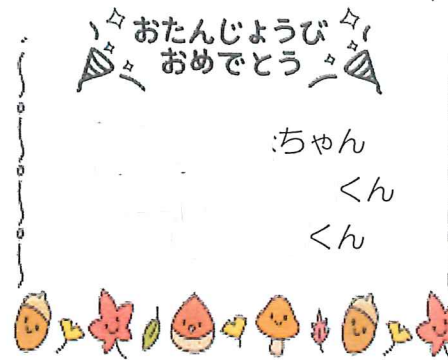 おたんじょうび
おめでとう
ちゃん
くん
くん